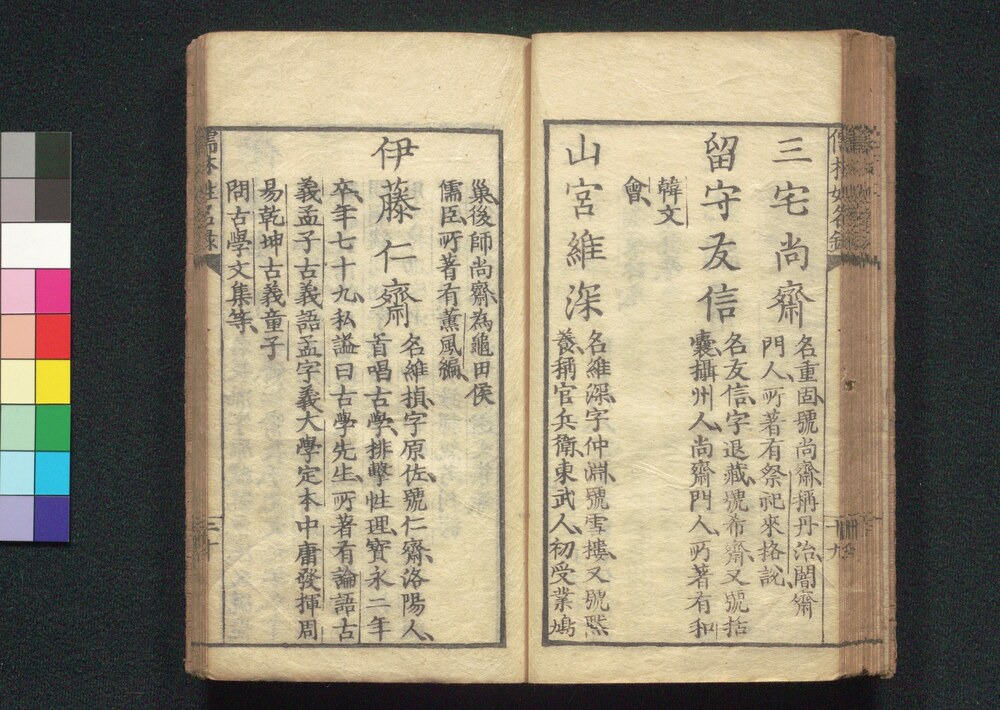 三宅尚齋
名重固、號尚齋、稱丹治、闇齋
門人、所著有祭祀來格說、
留守友信
名友信、字退藏、號希齋、又號括
囊、攝州人、尚齋門人、所著有和
韓文
會、
山宮維深
名維深、字仲淵、號雪樓、又號默
養、稱官兵衛、東武人、初受業鳩
巢、後師尚齋、為龜田侯
儒臣、所著有薰風編、
伊藤仁齋
名維楨、字原佐、號仁齋、洛陽人、
首唱古學、排擊性理、寶永二年
卒、年七十九、私謚曰古學先生、所著有論語古
義孟子古義語孟字義大學定本中庸發揮周
易乾坤古義童子
問古學文集等、
儒林姓名錄
三十